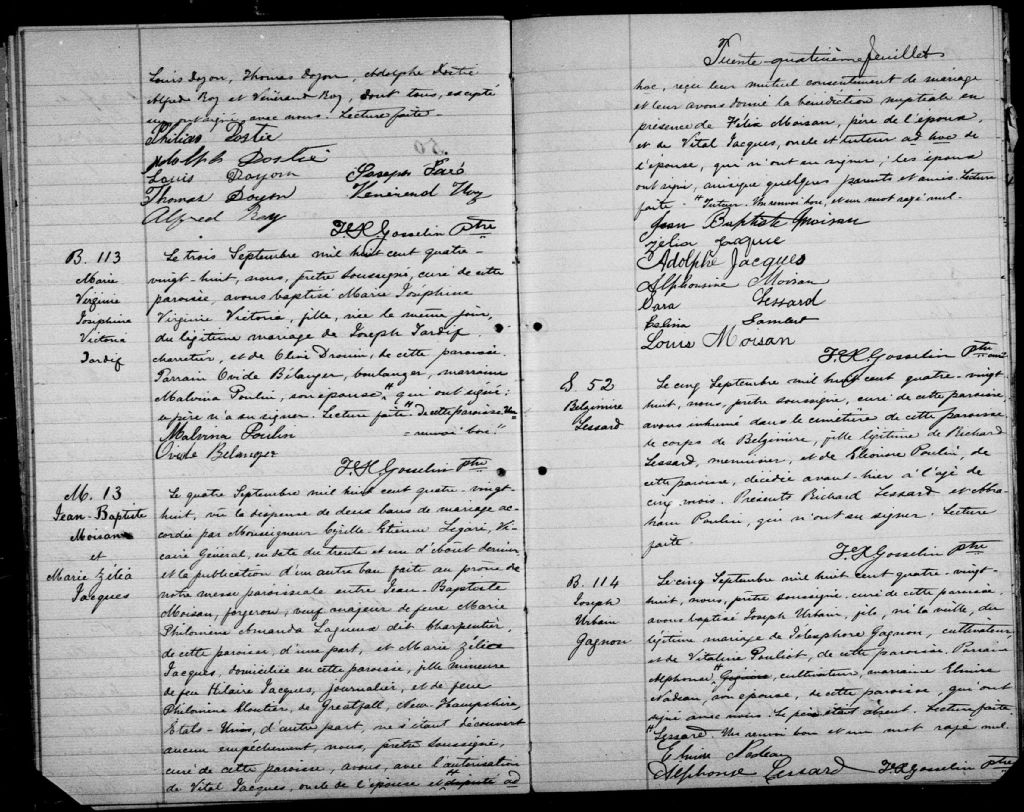 Louis Doyon, Thomas Doyon, Adolphe Dostie
Alfred Roy et Vénérand Roy, dont tous, excepté
un ont signé avec nous. Lecture faite.
Philias Dostie
Adolph Dostie
Louis Doyon Joseph Faré
Thomas Doyon Vénérend Roy
Alfred Roy
F.X. Gosselin Ptre
B. 113
Marie
Virginie
Joséphine
Victoria
Tardif
Le trois Septembre mil huit cent quatre-
vingt-huit, nous, prêtre soussigné, curé de cette
paroisse, avons baptisé Marie Joséphine
Virginie Victoria, fille, née le même jour,
du légitime mariage de Joseph Tardif,
charretier, et de Elise Drouin, de cette paroisse.
Parrain Ovide Bélanger, boulanger, marraine
Malvina Poulin, son épouse, # qui ont signé;
le père n'a su signer. Lecture faite # de cette paroisse. Un
renvoi bon.
Malvina Poulin
Ovide Belanger
F.X. Gosselin Ptre
M. 13
Jean-Baptiste
Moisan
et
Marie Zélia
Jacques
Le quatre Septembre mil huit cent quatre-vingt-
huit, vu la dispense de deux bans de mariage ac-
cordée par Monseigneur Cyrille Etienne Legaré, Vi-
caire Général, en date du trente et un d'Août dernier
et la publication d'un autre ban faite au prône de
notre messe paroissiale entre Jean-Baptiste
Moisan, forgeron, veuf majeur de feue Marie
Philomène Amanda Lagueux dit Charpentier,
de cette paroisse, d'une part, et Marie Zélia
Jacques, domiciliée en cette paroisse, fille mineure
de feu Hilaire Jacques, journalier, et de feue
Philomène Cloutier, de Greatfall, New-Hampshire,
Etats-Unis, d'autre part, ne s'étant découvert
aucun empêchement, nous, prêtre soussigné,
curé de cette paroisse, avons, avec l'autorisation
de Vital Jacques, oncle de l'épouse et # député ad
Trente-quatrième feuillet
hoc, reçu leur mutuel consentement de mariage
et leur avons donné la bénédiction nuptiale en
présence de Félix Moisan, père de l'époux,
et de Vital Jacques, oncle et tuteur ad hoc de
l'épouse, qui n'ont su signer; les époux
ont signé, ainsi que quelques parents et amis. Lecture
faite. # Tuteur. Un renvoi bon, et un mot rayé nul.
Jean Baptiste Moisan
Zélia Jacque
Adolphe Jacques
Alphonsine Moisan
Dara Lessard
Exlina Lambert
Louis Moisan
F.X. Gosselin Ptre curé
S. 52
Belzimire
Lessard
Le cinq Septembre mil huit cent quatre-vingt
huit, nous, prêtre soussigné, curé de cette paroisse,
avons inhumé dans le cimetière de cette paroisse
le corps de Belzimire, fille légitime de Richard
Lessard, menuisier, et de Eléonore Poulin, de
cette paroisse, décédée avant-hier à l'âge de
cinq mois. Présents Richard Lessard et Abra-
ham Poulin, qui n'ont su signer. Lecture
faite.
F.X. Gosselin Ptre
B. 114
Joseph
Urbain
Gagnon
Le cinq Septembre mil huit cent quatre-vingt-
huit, nous, prêtre soussigné, curé de cette paroisse,
avons baptisé Joseph Urbain, fils, né la veille, du
légitime mariage de Télesphore Gagnon, cultivateur,
et de Vitaline Pouliot, de cette paroisse. Parrain
Alphonse # Gagnon, cultivateur, marraine Elmire
Nadeau, son épouse, de cette paroisse, qui ont
signé avec nous. Le père était absent. Lecture faite.
# Lessard. Un renvoi bon et un mot rayé nul.
Elmire Nadeau
Alphonse Lessard F.X. Gosselin Ptre